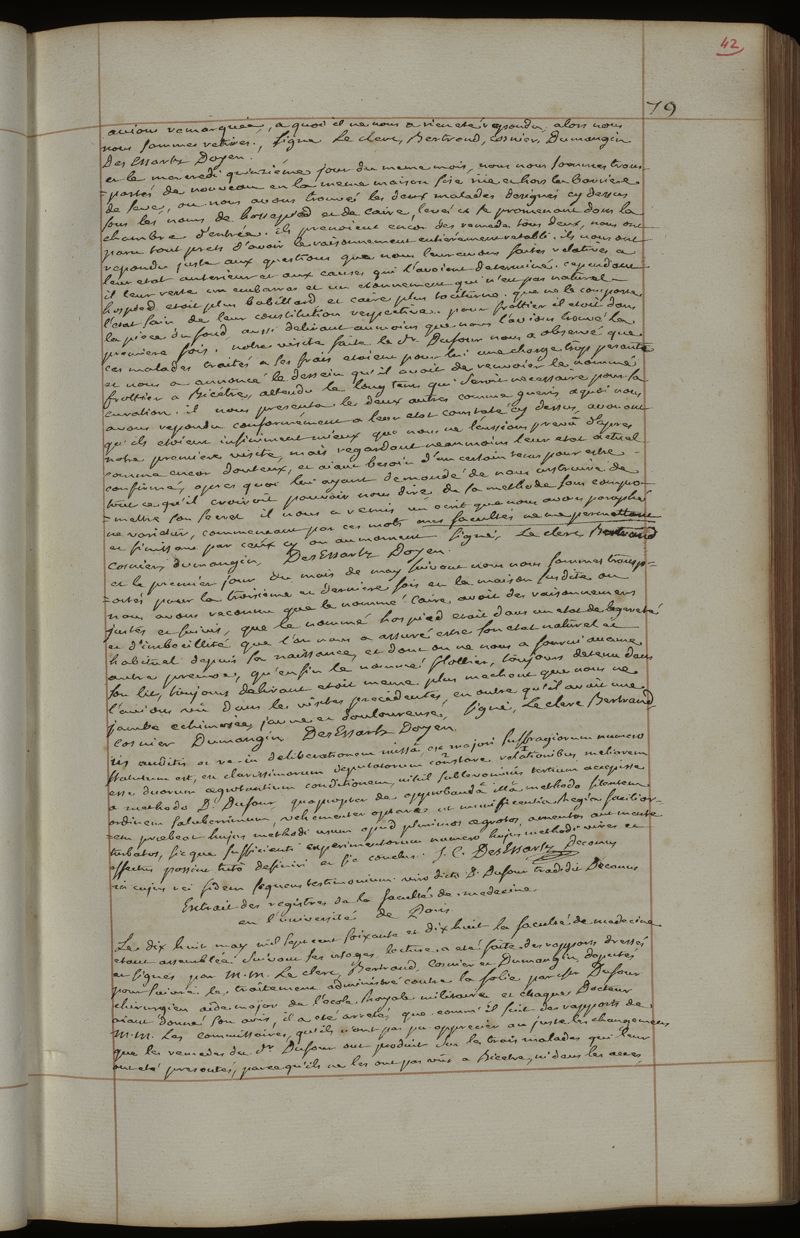 42
79
avions remarquée, a quoi il ne nous a rien eté repondu, alors nous
nous sommes retirés. Signé Le clerc, Bertrand, Cosnier, Dumangin
Des Essartz Doyen.
et le mercredi quinzième jour du meme mois, nous nous sommes trans-
=portés de nouveau en la meme maison sise rüe et hors la barriere
de seve, ou nous avons trouvés les deux malades designés cy dessus
sous les noms de hospied et de Caire, levés et se promenant dans la
chambre d'entrée. ils prenoient encor des remedes tous deux, nous ont
paru tout prets d'avoir le raisonnement entièrement retabli. ils nous ont
repondu juste aux questions que nous leur avons faites relatives a
leur etat anterieur et aux causes qui l'avoient determiné. cependant
il leur reste un embarras et un etonnement qui n'est pas naturel
hospied etoit plus babillard et Caire plus taciturne. que ne le comporte
l'etat sain de leur constitution respective. pour frottier il etoit dans
la piece du fond aussi delirant au moins que nous l'avions trouvé la
premiere fois. notre visite faite le Sr. Dufour nous a observé que
ces malades traités a ses frais etoient pour lui une charge trop pesante
et nous a annoncé le dessein qu'il avoit de renvoier le nommé
frottier a Bicêtre, attendu le long tems qui seroit necessaire pour sa
curation. il nous presenta les deux autres comme gueris a quoi nous
avons repondu conformement a leur etat constaté cy dessus, avouant
qu'ils etoient infiniment mieux que nous ne l'eussions prevû d'apres
notre premiere visite, mais regardant neanmoins leur etat actuel
comme encor douteux, et aiant besoin d'un certain tems pour estre
confirmé, apres quoi lui ayant demandé de nous instruire de
tout ce qu'il croiroit pouvoir nous dire de sa methode sans compro-
=mettre son secret il nous a remis un ecrit que nous avons paraphé
ne varietur, commencant par ces mots mes facultés ne me permettant
et finissans par ceux cy au moment signé, Le clerc Bertrand
Cosnier, dumangin, Des Essartz Doyen.
et le premier jour du mois de may suivant nous nous sommes transp-
=ortés pour la troisieme et derniere fois en la maison susdite ou
nous avons reconnu que le nommé Caire avoit des raisonnemens
justes et suivis, que le nommé hospied etoit dans un etat de legereté
et d'imbecillité que l'on nous a assuré estre son etat naturel et
habituel depuis sa naissance, et dont on ne nous a fourni aucune
autre preuve, qu'enfin le nommé flottier, toujours detenu dans
son lit, toujours delirant etoit meme plus mechant que nous ne
l'avions vû dans les visites precedentes, en outre qu'il avait une
jambe echimosée, jaune et douloureuse, signé, Le clerc Bertrand,
Cosnier Dumangin Des Essartz Doyen.
iis auditis et re in deliberationem missâ, ex majori suffragiorum numero
statutum est, ex clarissimorum deputatorum constare relationibus meliorem
esse duorum aegrotantium conditionem, nihil sublevaminis tertium accepisse
a methodo D. Dufour, quapropter de approbandâ illâ methodo silentem
ordinem saluberrimum, vehementer optare ut munificentia Regia facilior-
=em praebeat hujus methodi usum apud plurimos aegrotos, amentes aut mente
turbatos, sicque sufficienti experimentorum numero hujus methodi vires et
effectus possint tutò definiri et sic conclusi. J. C. Des Essartz Decanus
in cujus rei fidem sequens testimonium viro dicto D. Dufour tradidit Decanus
Extrait des registres de la faculté de medecine
en l'université de Paris
Le dix huit may mil sept cent soixante et dix huit la faculté de medecine
etant assemblée suivant ses usages, lecture a eté faite des rapports dressés
et signés par M.M. Le clerc, Bertrand, Cosnier et Dumangin, deputés
pour suivre le traitement administré contre la folie par Mr Dufour
chirurgien aide major de l'ecole Royale militaire et chaque Docteur
aiant donné son avis, il a eté arrêté que comm' il suit des rapports de
M.M. Les commissaires, qu'ils n'ont pas pu apprecier au juste les changemens
que les remedes du Sr Dufour ont produit sur les trois malades qui leur
ont eté presentés, parce qu'ils ne les ont pas vûs a Bicetre, ni dans les acces,